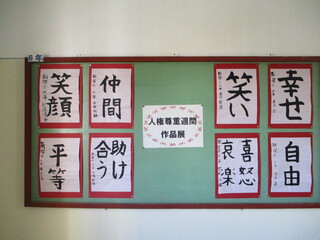 6年
笑顔
仲間
人権尊重週間
作品展
笑い
幸せ
平等
助け
合う
喜怒
哀楽
自由